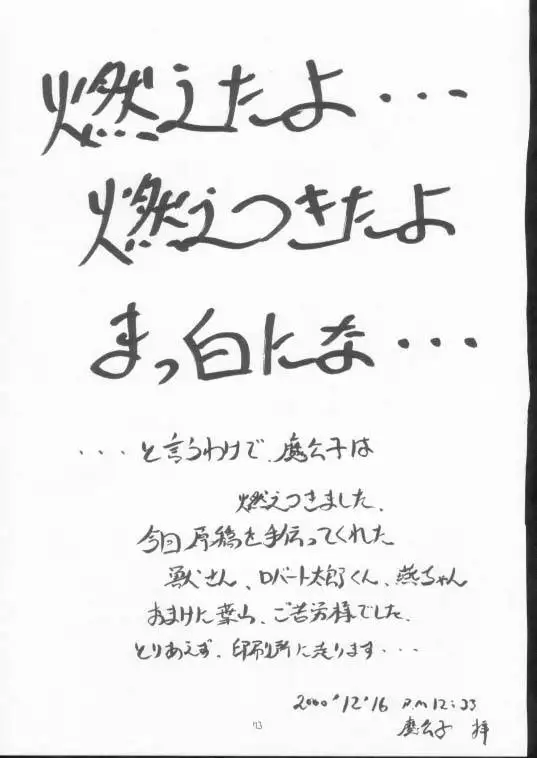 燃えたよ・・・
燃えつきたよ
まっ白にな・・・
・・・と言うわけで、魔公子は
燃えつきました、
今回原稿を手伝ってくれた
獣さん、ロバート太郎くん、燕ちゃん
おまけに葉山、ご苦労様でした、
とりあえず、印刷所に走ります・・・
2000'12'16 P.M 12:33
魔公子 拝
73